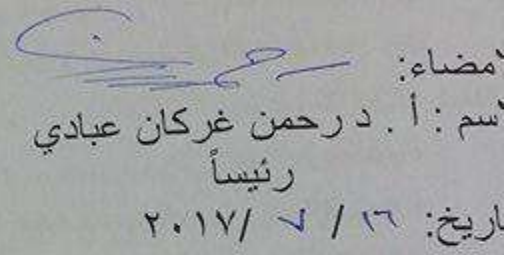 لامضاء:
لاسم : أ . د رحمن غركان عبادي
رئيساً
اريخ: ١٦ / ٧ /٢٠١٧